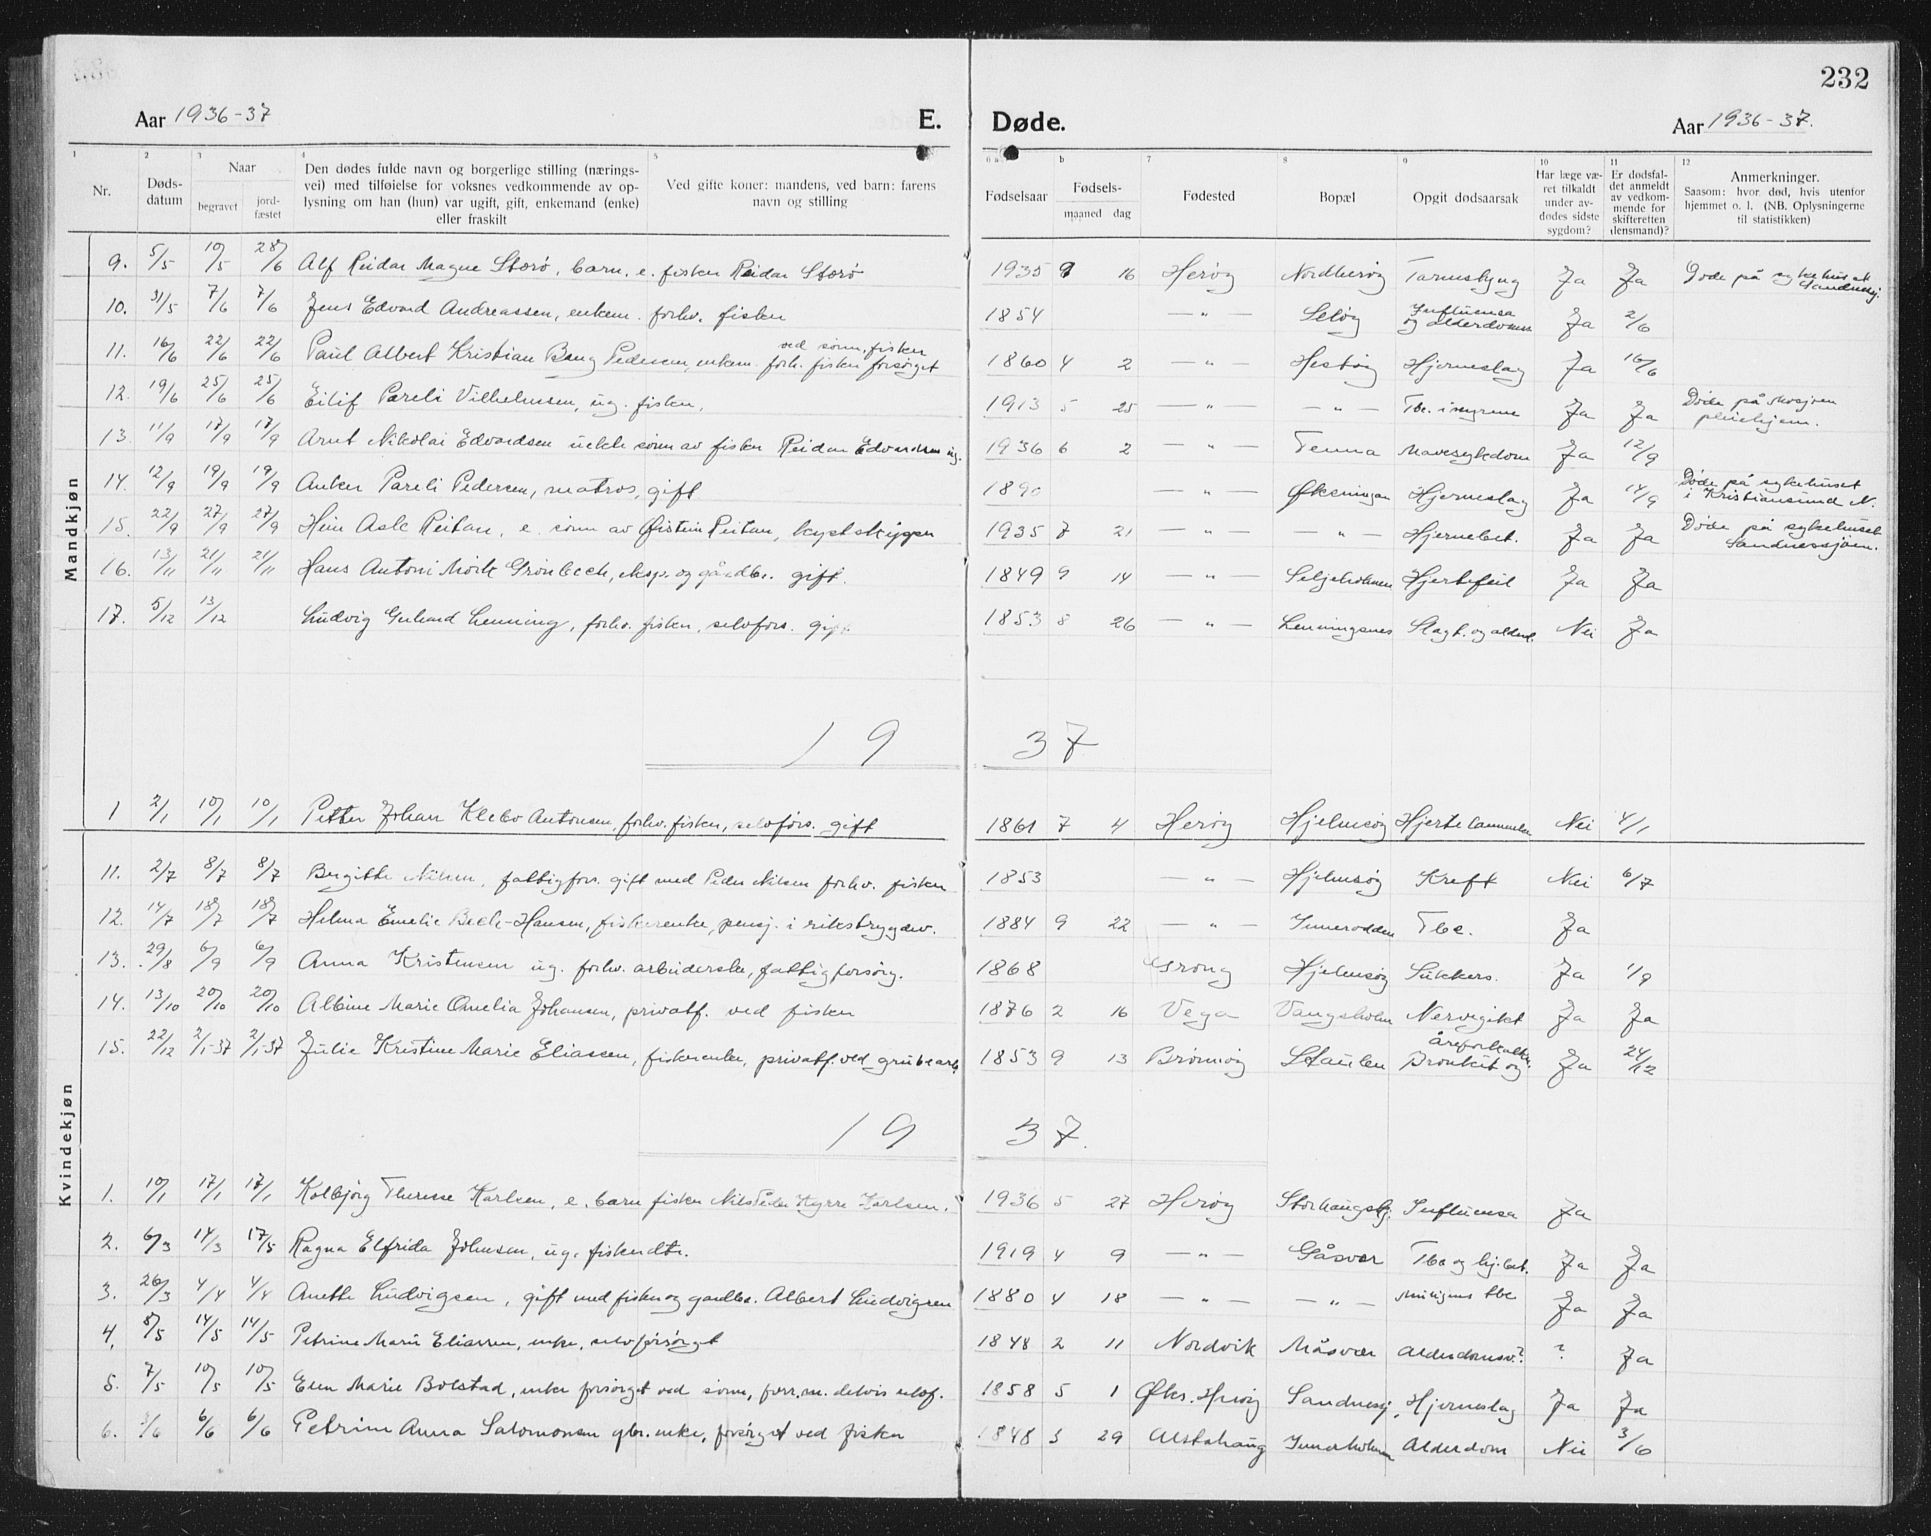 232
Aar 1936-37 E. Døde. Aar 1936-37.
1 2 3 4 5 6 a b 7 8 9 10 11 12
Nr. Døds-datum Naar begravet jord-fæstet Den dødes fulde navn og borgerlige stilling (nærings-vei) med tilføielse for voksnes vedkommende av op-lysning om han (hun) var ugift, gift, enkemand (enke) eller fraskilt Ved gifte koner: mandens, ved barn: farens navn og stilling Fødselsaar Fødsels- maaned dag Fødested Bopæl Opgit dødsaarsak Har læge væ-ret tilkaldt under av-dødes sidste sygdom? Er dødsfal-det anmeldt av vedkom-mende for skifteretten (lensmand)? Anmerkninger. Saasom: hvor død, hvis utenfor hjemmet o. l. (NB. Oplysningerne til statistikken)
Mandkjøn
9. 5/5 10/5 28/6 Alf Reidar Magne Storø, barn, e. fisker Reidar Storø 1935 9 16 Herøy Nordherøy Tarmslyng Ja Ja Døde på sykehuset Sandnessj.
10. 31/5 7/6 7/6 Jens Edvard Andreassen, enkem. forhv. fisker 1854 — „ — Seløy Influensa og alderdomss Ja 2/6
11. 16/6 22/6 22/6 Paul Albert Kristian Bang Pedersen, enkem. forh. fisker forsørget ved sønn, fisker 1860 4 2 — „ — Hestøy Hjerneslag Ja 16/6
12. 19/6 25/6 25/6 Eilif Pareli Vilhelmsen, ug. fisker. 1913 5 25 — „ — — „ — Tbc. i nyrene Ja Ja Døde på Mosjøen pleiehjem.
13. 11/9 17/9 17/9 Arnt Nikolai Edvardsen uekte sønn av fisker Reidar Edvardsen ug. 1936 6 2 — „ — Tenna Mavesykdom Ja 12/9
14. 12/9 19/9 19/9 Anker Pareli Pedersen, matros, gift 1890 — „ — Øksningan Hjerneslag Ja 14/9 Døde på sykehuset i Kristiansund N.
15. 22/9 27/9 27/9 Hein Asle Reitan, e. sønn av Øistein Reitan, kystskipper 1935 7 21 — „ — — „ — Hjernebet. Ja Ja Døde på sykehuset Sandnessjøen.
16. 13/11 21/11 21/11 Hans Antoni Mork Grønbech, eksp. og gårdbr. gift. 1849 9 14 — „ — Seljeholmen Hjertefeil Ja Ja
17. 5/12 13/12 Ludvig Gerhard Lenning, forhv. fisker, selvfors. gift 1853 8 26 — „ — Lenningsnes Slagt. og alderd. Nei Ja
19 37
1 2/1 10/1 10/1 Petter Johan Klebo Antonsen, forhv. fisker, selvførs. gift 1861 7 4 Herøy Hjelmsøy Hjertelammelse Nei 4/1
Kvindekjøn
11. 2/7 8/7 8/7 Bergitte Nilsen, fattigfors. gift med Peder Nilsen forhv. fisker 1853 — „ — Hjelmsøy Kreft Nei 6/7
12. 14/7 18/7 18/7 Helma Emelie Beck-Hansen, fiskerenke, pensj. i rikstrygdev. 1884 9 22 — „ — Innerodden Tbc. Ja
13. 29/8 6/9 6/9 Anna Kristensen ug. forhv. arbeiderske, fattigforsørg. 1868 Grong Hjelmsøy Sukkers. Ja 1/9
14. 13/10 20/10 20/10 Albine Marie Amelia Johansen, privatf. ved fisker 1876 2 16 Vega Vangsholm Nervegikt Ja Ja
15. 22/12 2/1-37 2/1-37 Julie Kristine Marie Eliassen, fiskerenke, privatf. ved grubearb. 1853 9 13 Brønnøy Staulen Bronkit og åreforkalkn. Ja 24/12
19 37.
1. 10/1 17/1 17/1 Kolbjørg Therese Karlsen, e. barn fisker Nils Peder Hyrre Karlsen. 1936 5 27 Herøy Storhaugshj. Influensa Ja
2. 6/3 14/3 17/5 Ragna Elfrida Johnsen, ug. fiskerdtr. 1919 4 9 — „ — Gåsvær Tbc og hj.bet. Ja Ja
3. 26/3 4/4 4/4 Anette Ludvigsen, gift med fisker og gardbr. Albert Ludvigsen 1880 4 18 — „ — — „ — tbc Ja Ja
4. 8/5 14/5 14/5 Petrine Marie Eliassen, enke, selvforsørget 1848 2 11 Nordvik Måsvær Alderdomsv.? ? Ja
5. 7/5 10/5 10/5 Elen Marie Bolstad, enke forsørget ved sønn, forr. m. delvis selvf. 1858 5 1 Øks. Herøy Sandnessj. Hjerneslag Ja Ja
6. 3/6 6/6 6/6 Petrine Anna Salomonsen gbr. enke, forsørget ved fisker 1848 3 29 Alstahaug Innerholmen Alderdom Nei 3/6